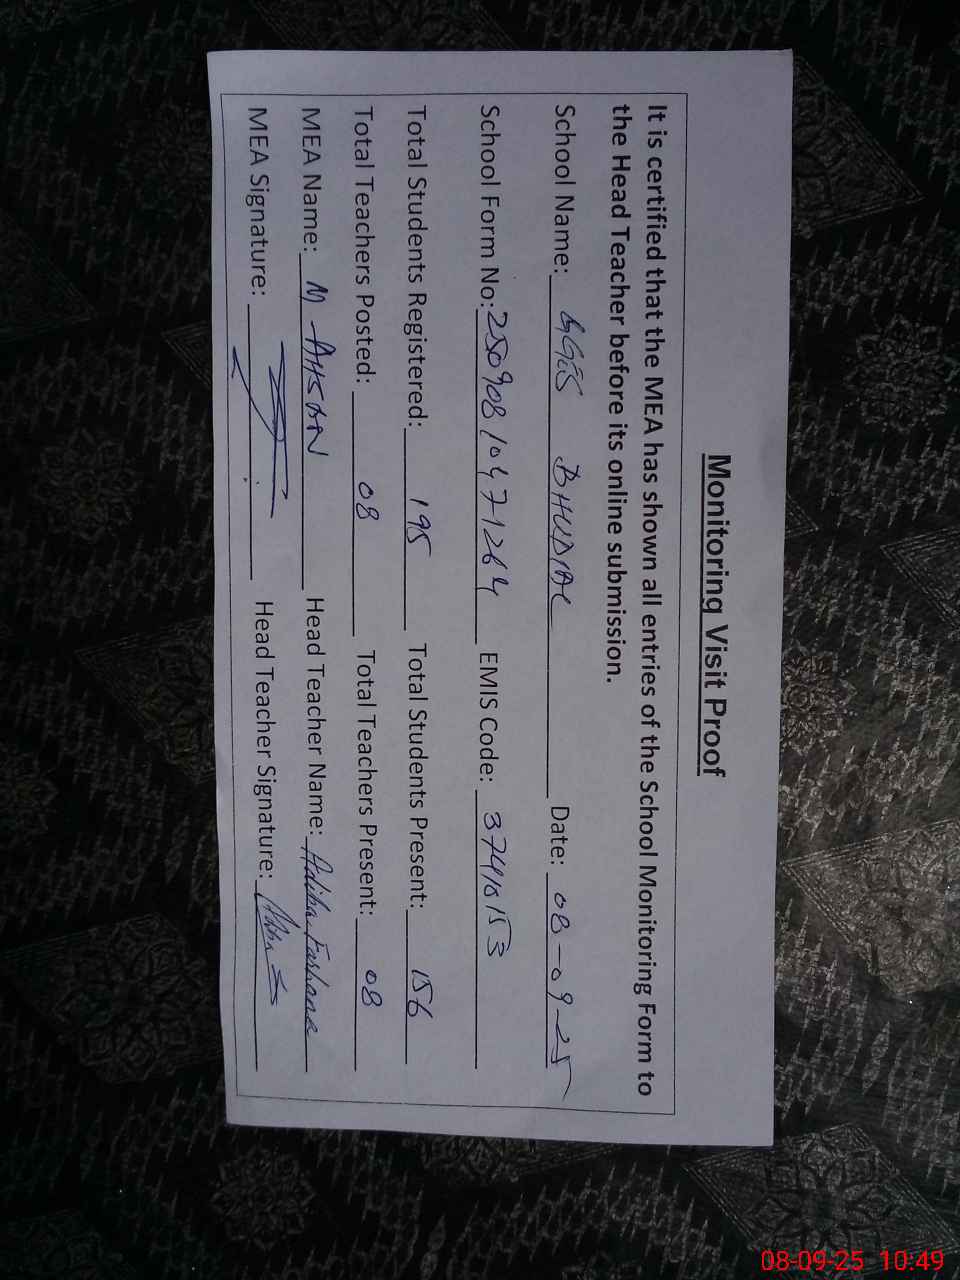 Monitoring Visit Proof
It is certified that the MEA has shown all entries of the School Monitoring Form to
the Head Teacher before its online submission.
School Name: GGES BHUDIAL Date: 08-09-25
School Form No: 25090810471264 EMIS Code: 37410153
Total Students Registered: 195 Total Students Present: 156
Total Teachers Posted: 08 Total Teachers Present: 08
MEA Name: M AHSAN Head Teacher Name: Adiba Farhana
MEA Signature: Head Teacher Signature:
08-09-25 10:49